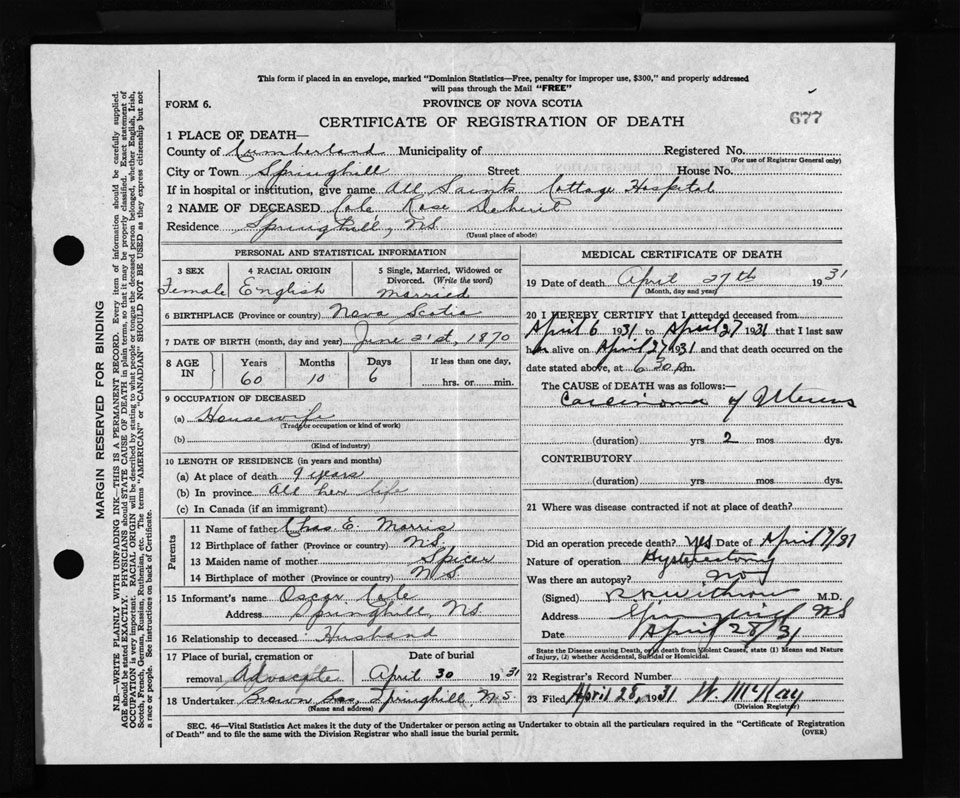 This form if placed in an envelope, marked "Dominion Statistics—Free, penalty for improper use, $300," and properly addressed
will pass through the Mail "FREE"
FORM 6.
PROVINCE OF NOVA SCOTIA
677
CERTIFICATE OF REGISTRATION OF DEATH
1 PLACE OF DEATH—
County of Cumberland Municipality of Registered No.
(For use of Registrar General only)
City or Town Springhill Street House No.
If in hospital or institution, give name All Saints Cottage Hospital
2 NAME OF DECEASED Cole, Rose
Residence Springhill, NS
(Usual place of abode)
PERSONAL AND STATISTICAL INFORMATION
3 SEX 4 RACIAL ORIGIN 5 Single, Married, Widowed or
Divorced. (Write the word)
Female English Married
6 BIRTHPLACE (Province or country) Nova Scotia
7 DATE OF BIRTH (month, day and year) June 21st, 1870
8 AGE IN Years Months Days If less than one day,
60 10 6 hrs. or min.
9 OCCUPATION OF DECEASED
(a) Housewife
(Trade or occupation or kind of work)
(b)
(Kind of industry)
10 LENGTH OF RESIDENCE (in years and months)
(a) At place of death 9 years
(b) In province All her life
(c) In Canada (if an immigrant)
Parents
11 Name of father Chas E. Morris
12 Birthplace of father (Province or country) N.S.
13 Maiden name of mother Spicer
14 Birthplace of mother (Province or country) N S.
15 Informant's name Oscar Cole
Address Springhill, NS
16 Relationship to deceased Husband
17 Place of burial, cremation or Date of burial
removal Advocate April 30 1931
18 Undertaker Brown Bros, Springhill, N.S.
(Name and address)
MEDICAL CERTIFICATE OF DEATH
19 Date of death April 27th 1931
(Month, day and year)
20 I HEREBY CERTIFY that I attended deceased from
April 6 1931 to April 27 1931 that I last saw
her alive on April 27 1931 and that death occurred on the
date stated above, at 6 30 p.m.
The CAUSE of DEATH was as follows:—
Carcinoma of Uterus
(duration) yrs 2 mos dys.
CONTRIBUTORY
(duration) yrs. mos. dys.
21 Where was disease contracted if not at place of death?
Did an operation precede death? yes Date of April 7/31
Nature of operation Hysterectomy
Was there an autopsy? No
(Signed) M.D.
Address Springhill NS
Date April 28/31
State the Disease causing Death, or in death from Violent Causes, state (1) Means and Nature
of Injury, (2) whether Accidental, Suicidal or Homicidal.
22 Registrar's Record Number
23 Filed April 28, 1931 W. McKay
(Division Registrar)
SEC. 46—Vital Statistics Act makes it the duty of the Undertaker or person acting as Undertaker to obtain all the particulars required in the "Certificate of Registration
of Death" and to file the same with the Division Registrar who shall issue the burial permit. (OVER)
MARGIN RESERVED FOR BINDING
N.B.—WRITE PLAINLY WITH UNFADING INK—THIS IS A PERMANENT RECORD. Every item of information should be carefully supplied.
AGE should be stated EXACTLY. PHYSICIANS should STATE CAUSE OF DEATH in plain terms, so that it may be properly classified. Exact statement of
OCCUPATION is very important. RACIAL ORIGIN will be described by stating to what people or tongue the deceased person belonged, whether English, Irish,
Scotch, French, German, Russian, Ruthenian, etc. The terms "AMERICAN" or "CANADIAN" SHOULD NOT BE USED as they express citizenship but not
a race or people. See instructions on back of Certificate.